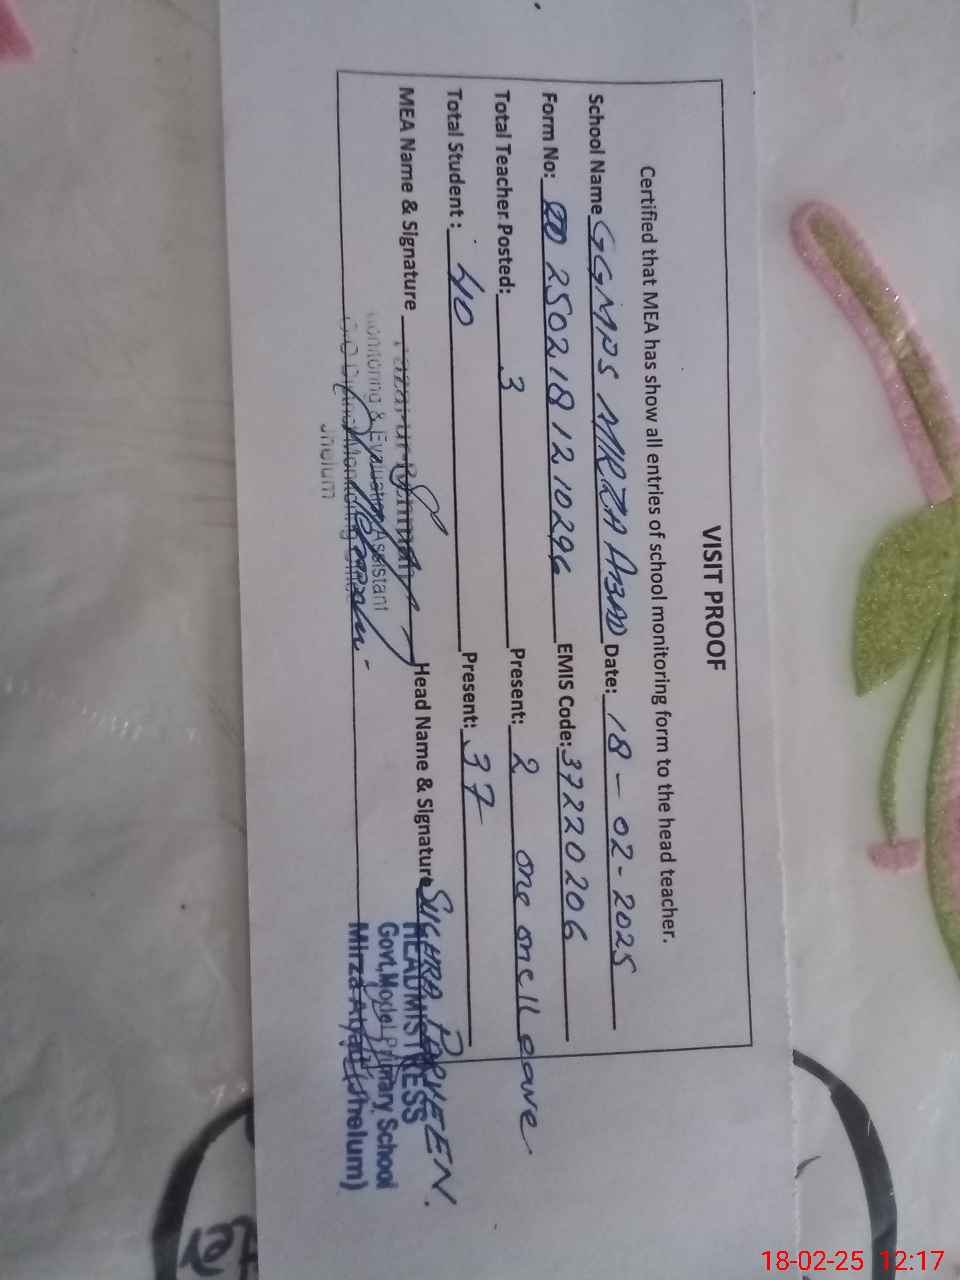 VISIT PROOF
Certified that MEA has show all entries of school monitoring form to the head teacher.
School Name GGMPS MIRZA ABAD Date: 18-02-2025
Form No: 2502181210296 EMIS Code: 37220206
Total Teacher Posted: 3 Present: 2 one on leave
Total Student: 40 Present: 37
MEA Name & Signature Head Name & Signature SUGHRA PARVEEN.
Monitoring & Evaluation Assistant
Jhelum
HEADMISTRESS
Govt,Model Primary School
Mirza Abad (Jhelum)
18-02-25 12:17